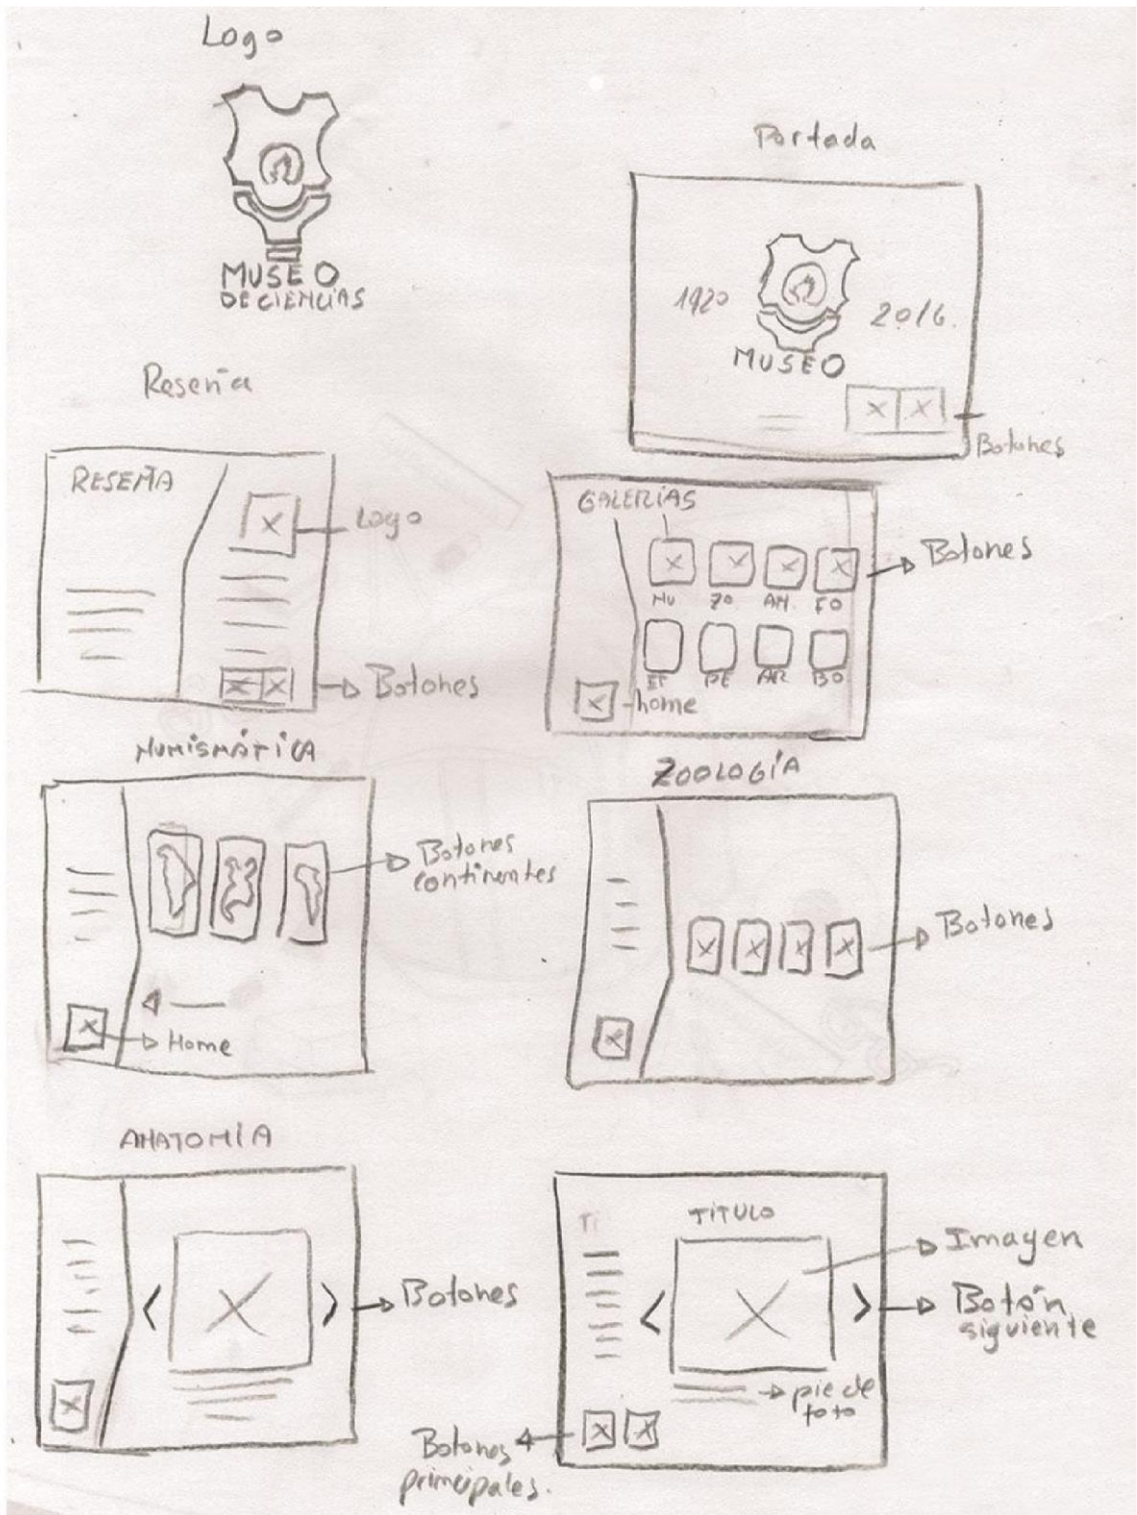 Logo
MUSEO
DE CIENCIAS
Portada
1920
2016.
MUSEO
Botones
Reseña
RESEÑA
Logo
Botones
GALERÍAS
NU ZO. AN. FO
ET PE AR BO
Botones
home
NUMISMÁTICA
Botones
continentes
Home
ZOOLOGÍA
Botones
ANATOMÍA
Botones
Ti
TITULO
Imagen
Botón
siguiente
pie de
foto
Botones
principales.